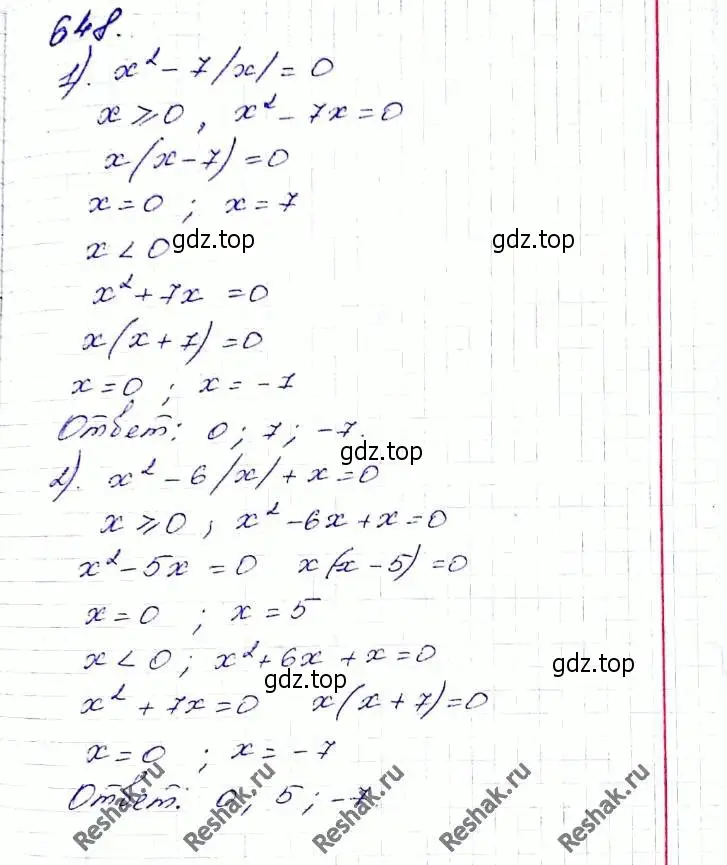 648.
1). x² - 7|x| = 0
x ⩾ 0, x² - 7x = 0
x(x - 7) = 0
x = 0 ; x = 7
x < 0
gdz.top gdz.top
x² + 7x = 0
x(x + 7) = 0
x = 0 ; x = -7
Ответ: 0 ; 7 ; -7.
gdz.top
2). x² - 6|x| + x = 0
x ⩾ 0, x² - 6x + x = 0
x² - 5x = 0 x(x - 5) = 0
x = 0 ; x = 5
x < 0 ; x² + 6x + x = 0
gdz.top gdz.top
x² + 7x = 0 x(x + 7) = 0
x = 0 ; x = -7
Ответ: 0 ; 5 ; -7
Reshak.ru Reshak.ru Reshak.ru Reshak.ru Reshak.ru